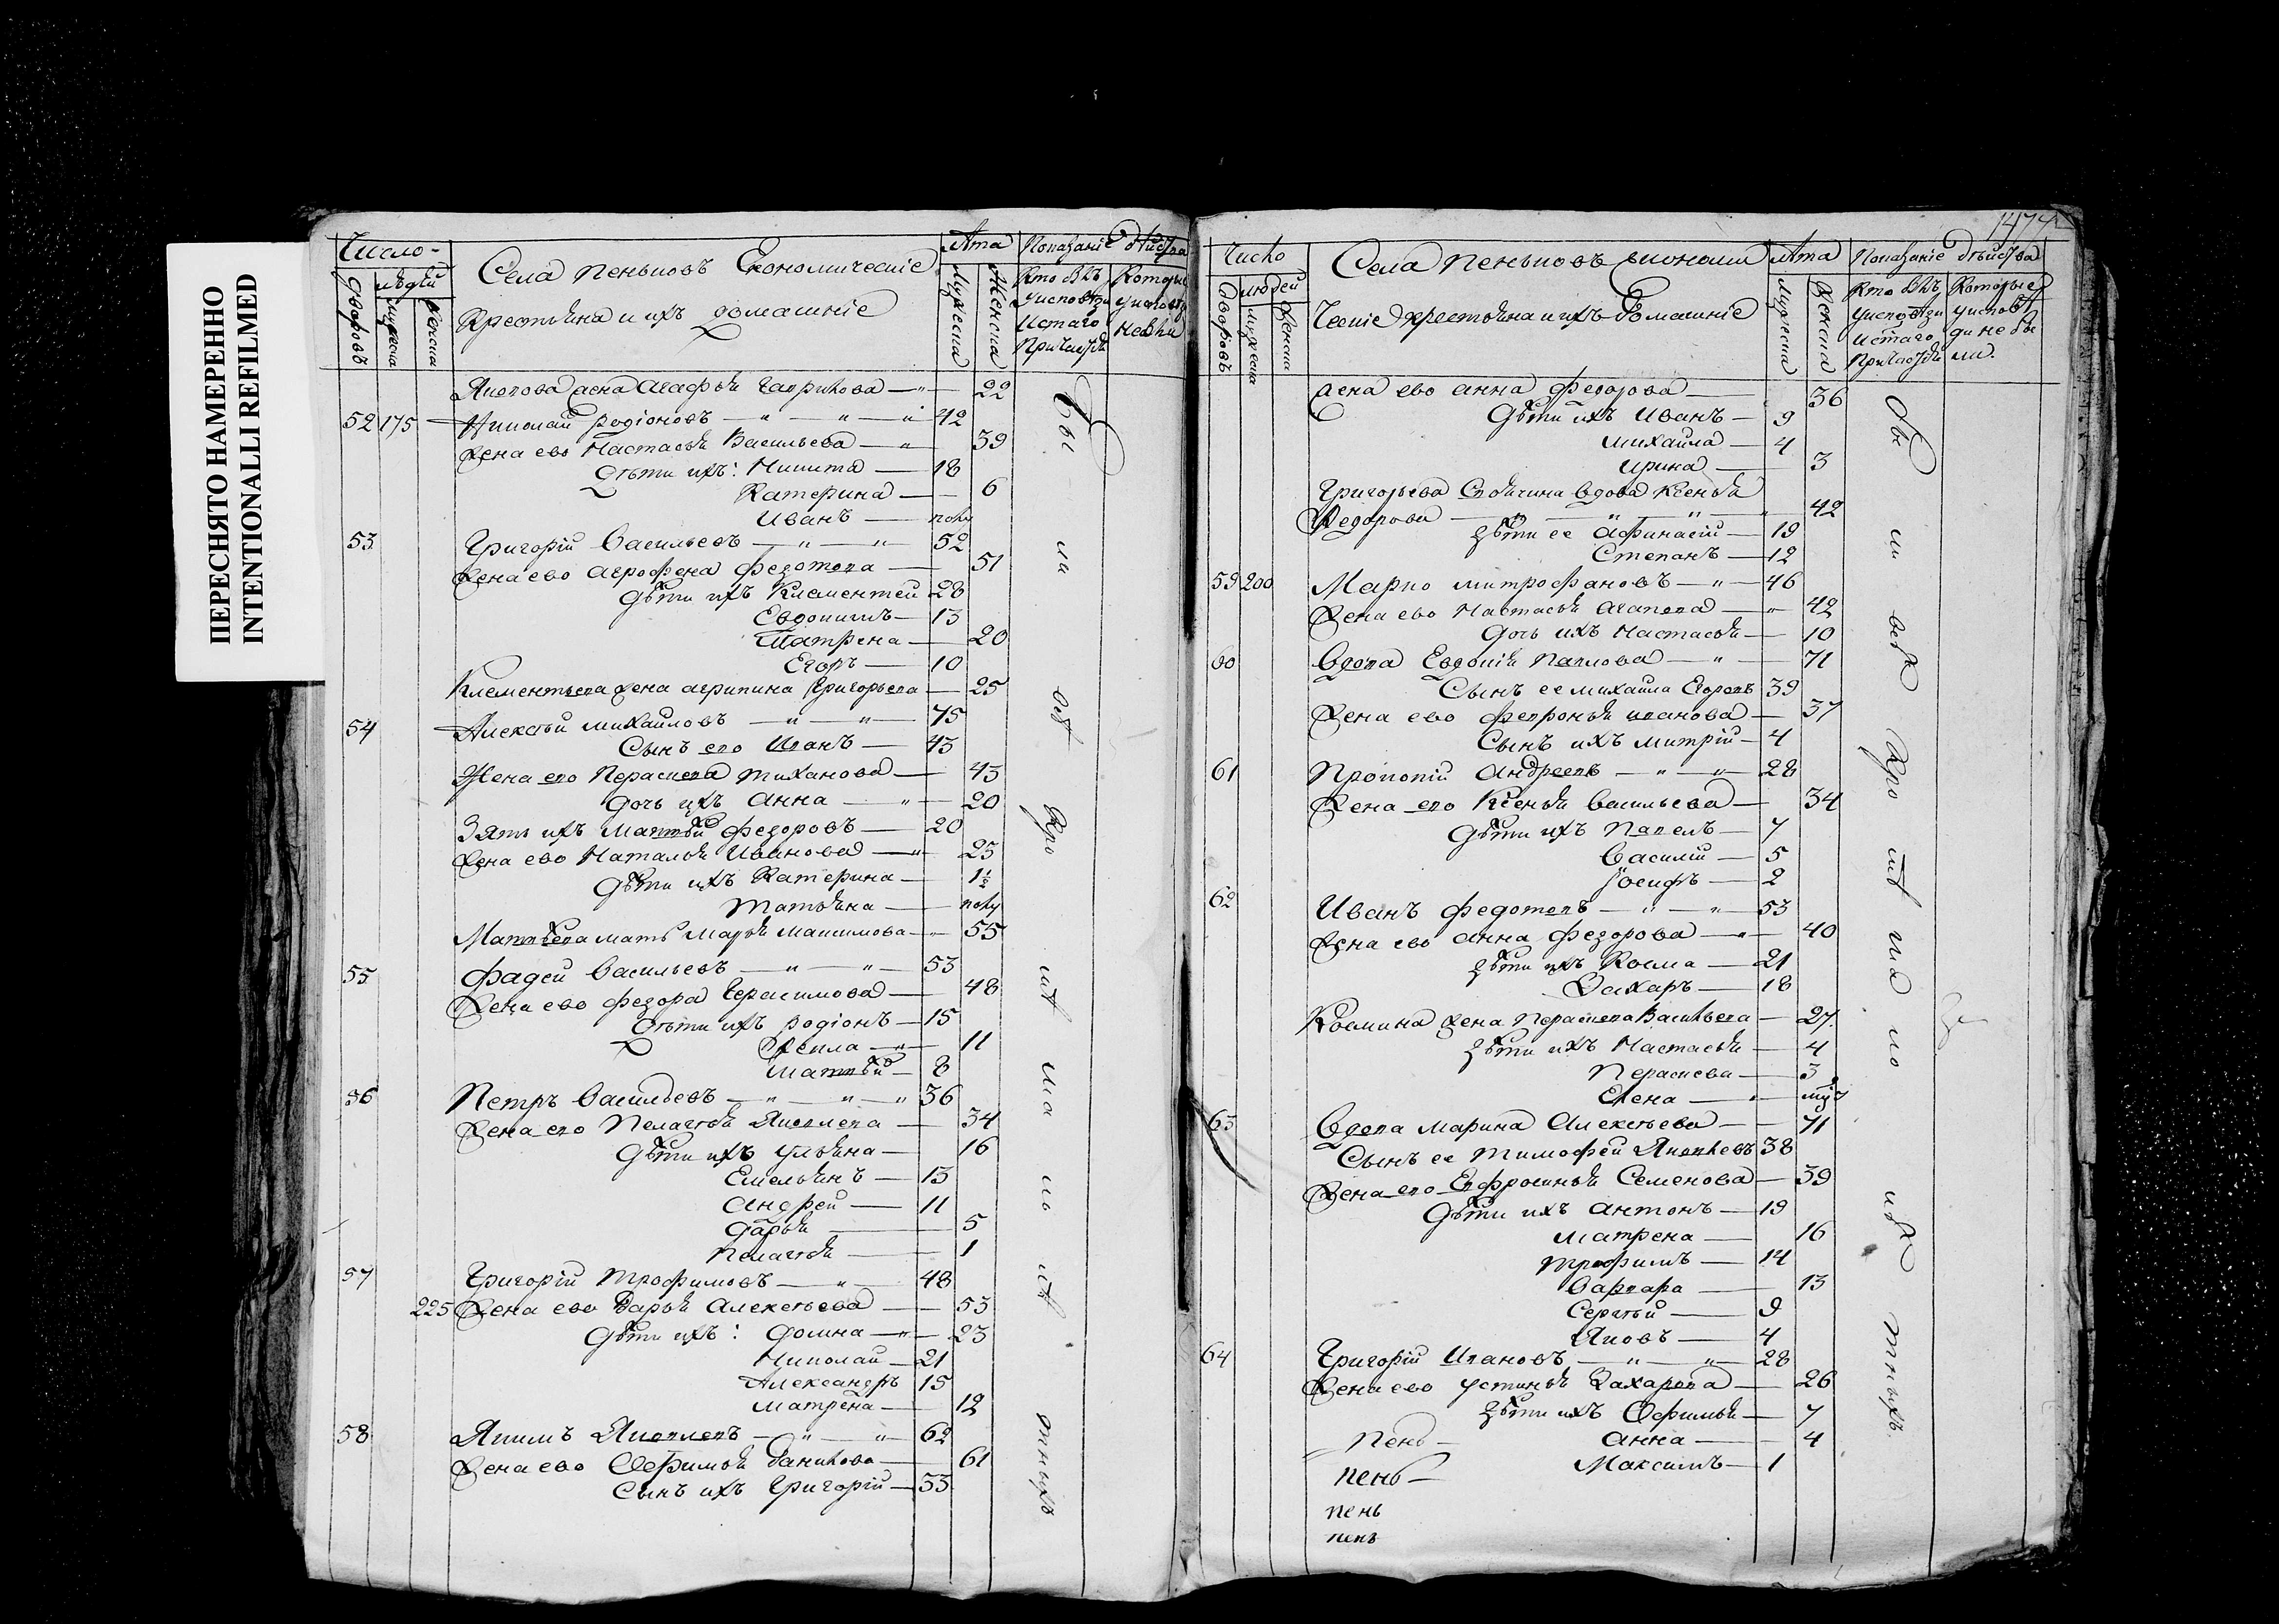 ПЕРЕСНЯТО НАМЕРЕННО
INTENTIONALLI REFILMED
Число
дворовъ
людей
мужеска
женска
Села пеньковъ Економическіе
крестьяна и ихъ домашніе
Лѣта
Мужеска
Женска
Показаніе дѣйства
Кто былъ
у исповѣди
и стаго
причастія
Которые
у исповѣ
не были
Яковова жена Агафья Гаврилова — 22
52 175 Николай родіоновъ — 42
жена ево Настасья Васильева — 39
дѣти ихъ: Никита — 18
Катерина — 6
Иванъ — полу
53 Григорій Васильевъ — 52
жена ево агрофена федотова — 51
дѣти ихъ Клементей 28
Евдокимъ — 13
Матрена — 20
Егоръ — 10
Клементьева жена агрипина Григорьева — 25
54 Алексѣй михайловъ — 75
Сынъ ево Иванъ — 43
Жена ево Парасковья тиханова — 43
дочь ихъ анна — 20
Зять ихъ Матвѣй федоровъ — 20
жена ево Наталья Иванова — 25
дѣти ихъ Катерина — 1½
Татьяна — полу
Матвѣева мать Марья Максимова — 55
55 фадей Васильевъ — 53
жена ево федора Герасимова — 48
дѣти ихъ родіонъ — 15
Фекла — 11
Матвѣй — 8
56 Петръ Васильевъ — 36
жена ево Пелагѣя Яковлева — 34
дѣти ихъ ульяна — 16
Емельянъ — 13
андрей — 11
дарья — 5
пелагѣя — 1
57 Григорій трофимовъ — 48
225 жена ево дарья алексѣева — 53
дѣти ихъ: домна — 23
Николай — 21
Александръ 15
матрена — 12
58 Якимъ Яковлевъ — 62
жена ево Ефимья данилова — 61
Сынъ ихъ Григорій — 33
Бы
ли
всѣ
кро
мѣ
ма
ло
лѣ
тныхъ
1474
Число
дворовъ
людей
мужеска
женска
Села пеньковъ економи
ческіе крестьяна и ихъ домашніе
Лѣта
мужеска
женска
Показаніе дѣйства
Кто былъ
у исповѣди
и стаго
причастія
Которые
у исповѣ
ди не бы
ли.
жена ево анна федорова — 36
дѣти ихъ Иванъ — 9
михайла — 4
ирина — 3
Григорьева вдова ксенья
федорова — 42
дѣти ее афинасій — 19
Степанъ — 12
59 200 Марко митрофановъ — 46
жена ево Настасья агапова — 42
дочь ихъ Настасья — 10
60 вдова Евдокія павлова — 71
Сынъ ее михайла Егоровъ 39
жена ево февронья иванова — 37
Сынъ ихъ митрій — 4
61 Прокопій андреевъ — 28
жена ево Ксенья васильева — 34
дѣти ихъ павелъ — 7
василій — 5
Іосифъ — 2
62 Иванъ федотовъ — 53
жена ево анна федорова — 40
дѣти ихъ Косма — 21
Захаръ — 18
Космина жена парасковья васильева — 27
дѣти ихъ Настасья — 4
парасковья — 3
Елена —
63 вдова марина алексѣева — 71
Сынъ ее тимофей Яковлевъ 38
жена ево Ефросинья Семенова — 39
дѣти ихъ антонъ — 19
матрена — 16
трофимъ — 14
варвара — 13
Сергѣй — 9
Яковъ — 4
64 Григорій Ивановъ — 28
жена ево устинья Захарова — 26
дѣти ихъ Ефимья — 7
пень — анна — 4
пень — Максимъ — 1
пень
пень
бы
ли
всѣ
кро
мѣ
ма
ло
лѣ
тныхъ